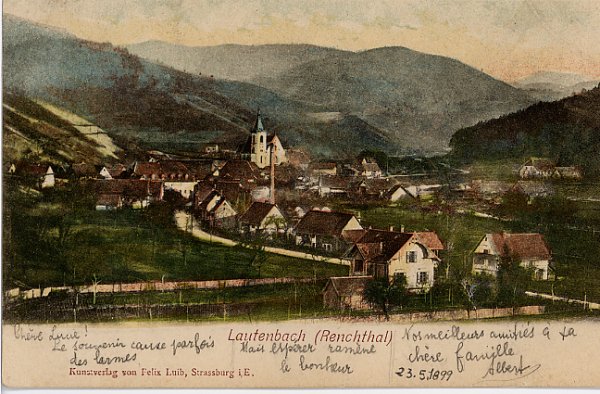 Lautenbach (Renchthal)
Chère Lucie!
Le souvenir cause parfois
des larmes
Mais espérer ramène
le bonheur
Nos meilleurs amitiés à ta
chère famille
23.5.1899 Albert
Kunstverlag von Felix Luib, Strassburg i,E.